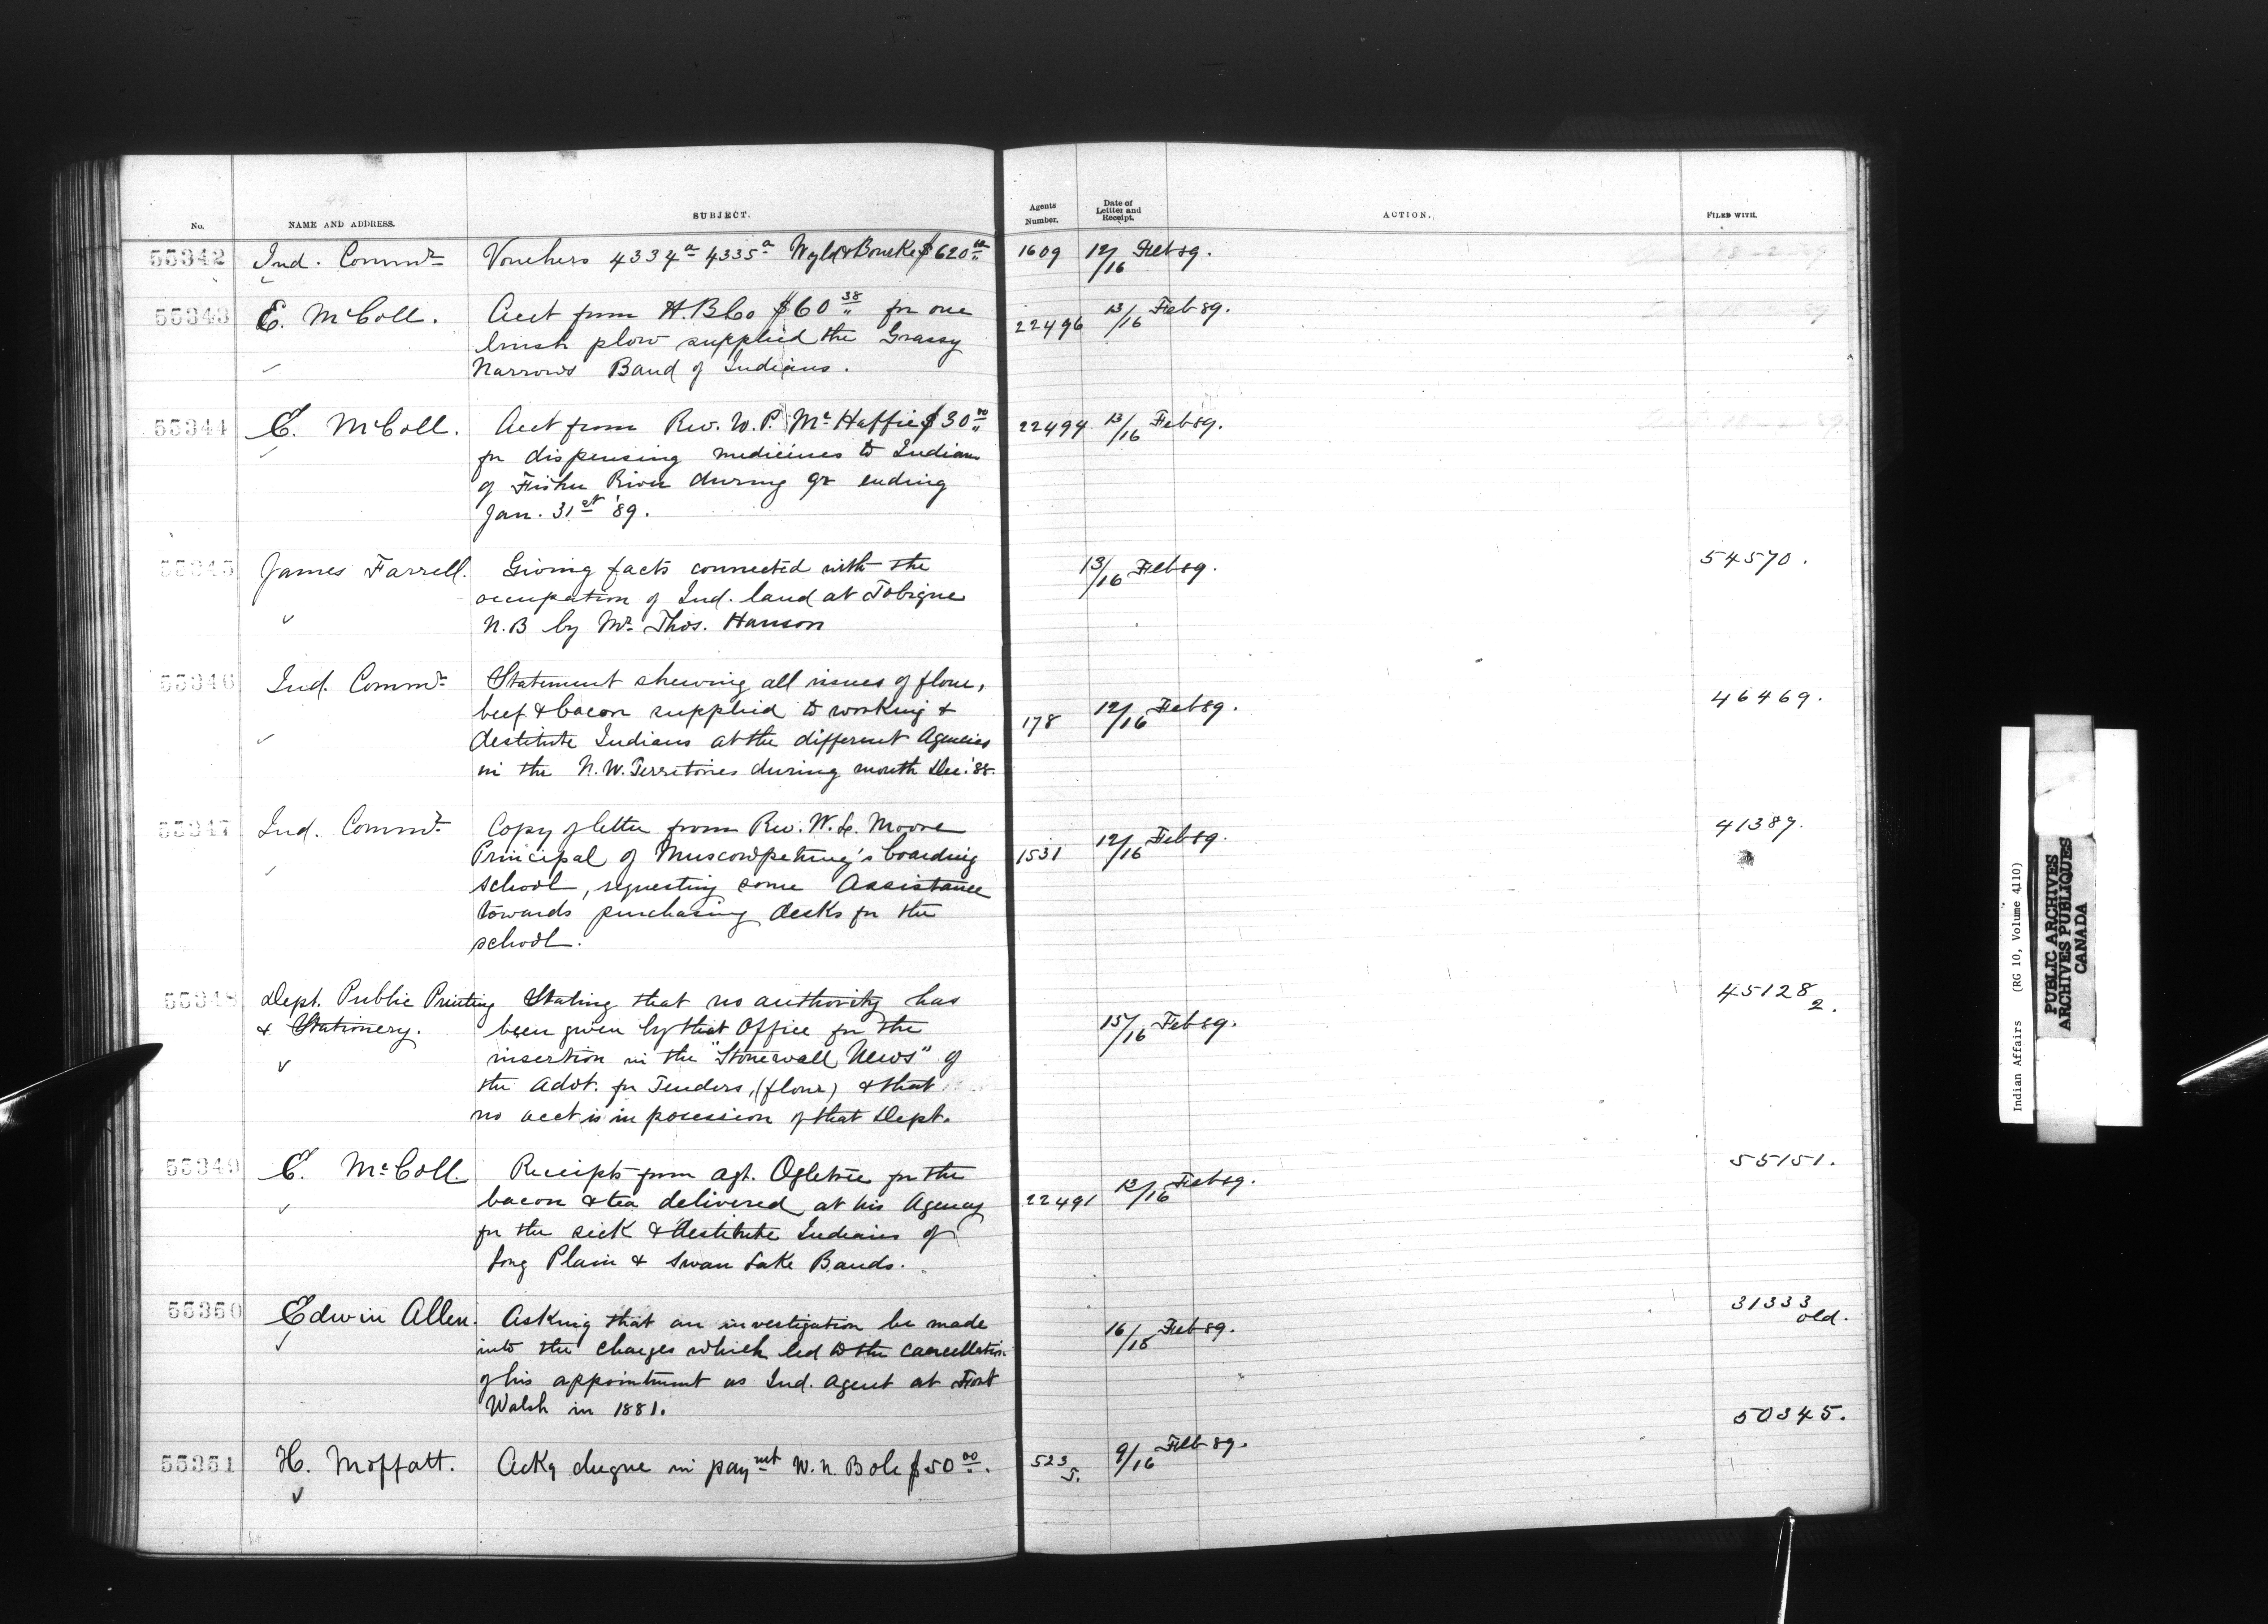 No. NAME AND ADDRESS. SUBJECT. Agents Number. Date of Letter and Receipt. ACTION. FILED WITH.
55342 Ind. Commr Vouchers 4334a 4335a Wyld & Bourke $620.00 1609 12/16 Feb 89.
55343 E. McColl. Acct from H.B.Co $60.38 for one 22496 13/16 Feb 89.
brush plow supplied the Grassy
Narrows Band of Indians.
55344 E. McColl. Acct from Rev. W. P. McHaffie $30.00 22494 13/16 Feb 89.
for dispensing medicines to Indians
of Fisher River during qr ending
Jan. 31st '89.
55345 James Farrell. Giving facts connected with the 13/16 Feb 89. 54570.
occupation of Ind. land at Tobique
N.B by Mr. Thos. Hanson
55346 Ind. Commr Statement shewing all issues of flour, 46469.
beef & bacon supplied to working & 178 12/16 Feb 89.
destitute Indians at the different Agencies
in the N.W. Territories during month Dec. '88.
55347 Ind. Commr Copy of letter from Rev. W. S. Moore 41389.
Principal of Muscowpetung's boarding 1531 12/16 Feb 89.
school, requesting some Assistance
towards purchasing desks for the
school.
55348 Dept. Public Printing Stating that no authority has 45128 2.
& Stationery. been given by that Office for the 15/16 Feb 89.
insertion in the "Stonewall News" of
the Advt. for Tenders, (flour) & that
no acct is in posession of that Dept.
55349 E. McColl. Receipts from Agt. Ogletree for the 55151.
bacon & tea delivered at his Agency 22491 13/16 Feb 89.
for the sick & destitute Indians of
Long Plain & Swan Lake Bands.
55350 Edwin Allen. Asking that an investigation be made 16/18 Feb 89. 31333 old.
into the charges which led to the cancellation
of his appointment as Ind. Agent at Fort
Walsh in 1881.
50345.
55351 H. Moffatt. Ackg cheque in paymt W. N. Bole $50.00. 523 5. 9/16 Feb 89.
Indian Affairs (RG 10, Volume 4110)
PUBLIC ARCHIVES
ARCHIVES PUBLIQUES
CANADA